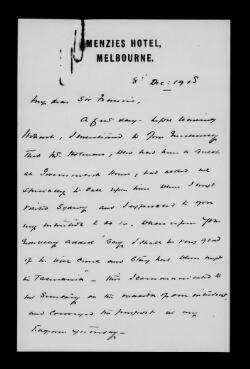 MENZIES HOTEL,
MELBOURNE.
8: Dec: 1915
My dear Sir Francis,
A few days before leaving
Hobart, I mentioned to Your Excellency
That Mr. Holman, who had been a guest
at Government House, had asked me
specially to call upon him when I next
visited Sydney and I expressed to you
my intention to do so. Whereupon Your
Excellency added "Say I shall be very glad
if he will come and stay here when next
in Tasmania" – this I communicated to
on the
and conveyed the purport in my
telegram yesterday –